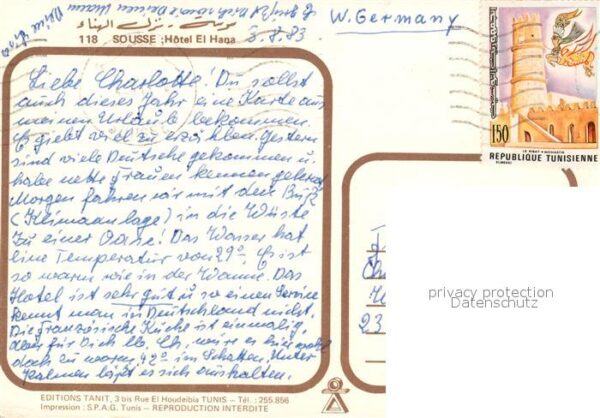 W. Germany
سوسة نزل الهناء
118 SOUSSE :Hôtel El Hana 3.8.83
Liebe Charlotte! Du sollst
auch dieses Jahr eine Karte aus
meinen Urlaub bekommen.
Es giebt viel zu erzählen. Gestern
sind viele Deutsche gekommen u.
habe nette Frauen kennen gelernt
Morgen fahren wir mit dem Buß
(Klimaanlage) in die Wüste
zu einer Oase! Das Wasser hat
eine Temperatur von 29°. Es ist
so warm wie in der Wanne. Das
Hotel ist sehr gut u so einen Service
kennt man in Deutschland nicht.
Die französische Küche ist einmalig,
für Dich
doch zu warm, 42° im Schatten. Unter
Palmen läßt es sich aushalten.
EDITIONS TANIT, 3 bis Rue El Houdeibia TUNIS - Tél. : 255.856
Impression : S.P.A.G. Tunis - REPRODUCTION INTERDITE
150
LE RIBAT - MONASTIR
REPUBLIQUE TUNISIENNE
privacy protection
Datenschutz